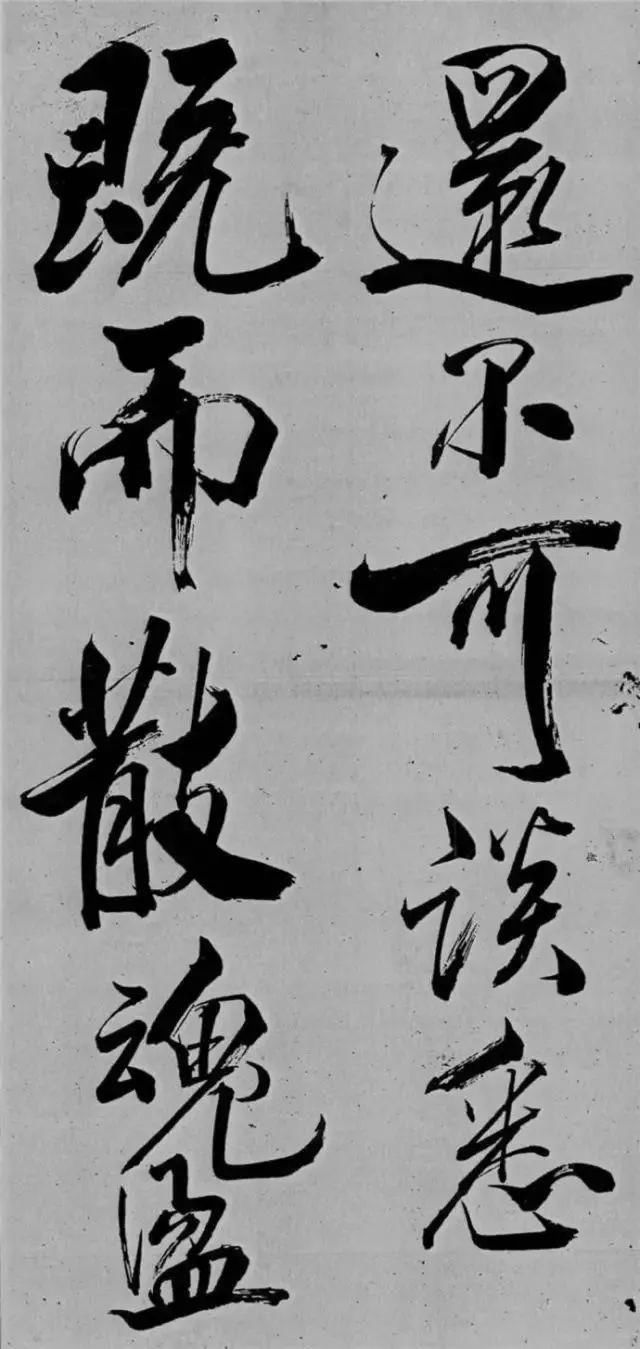 還不可談悉
既而散魂盪